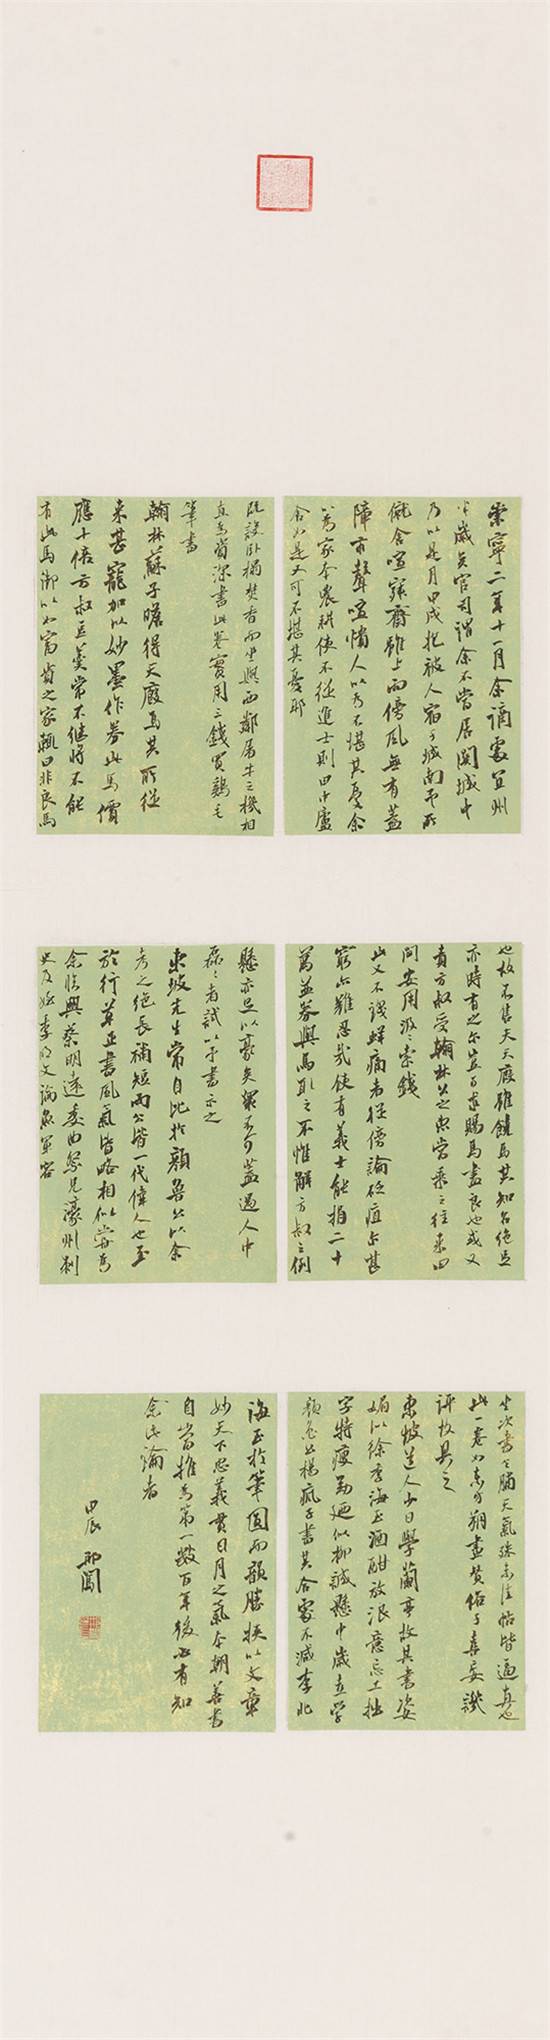 崇寧二年十一月余謫處宜州
半歲矣官司謂余不當居關城中
乃以是月甲戌抱被入宿于城南予所
僦舍喧寂齋雖上雨傍風無有蓋
障市聲喧憒人以為不堪其憂余
以為家本農耕使不從進士則田中廬
舍如是又可不堪其憂耶
既設臥榻焚香而坐與西鄰屠牛之機相
直為資深書此卷實用三錢買鷄毛
筆書
翰林蘇子瞻得天廄馬其所從
來甚寵加以妙墨作券此馬價
應十倍方叔豆羹常不繼將不能
有此馬御以如富貴之家輒曰非良馬
也故不售夫天廄雖饒馬其知名絕足
亦時有之尔豈可求賜馬盡良也或又
責方叔受翰林公之惠當乘之往來田
間安用汲汲索錢
此又不識蚌痛者從傍論砭疽尔甚
窮亦難忍哉使有義士能捐二十
萬並券與馬取之不惟解方叔之倒
懸亦足以豪矣衆不可蓋遇人中
磊磊者試以予書示之
東坡先生常自比於顏魯公以余
考之絕長補短兩公皆一代偉人也至
於行草正書風氣皆略相似嘗為
余臨與蔡明遠委曲祭兄濠州刺
史及姪季明文論魚軍容
坐次書乞脯天氣殊未佳帖皆逼真也
此一卷如東方朔畫贊俗子喜妄譏
評故具之
東坡道人少日學蘭亭故其書姿
媚似徐季海至酒酣放浪意忘工拙
字特瘦勁迺似柳誠懸中歲喜學
顏魯公楊瘋子書其合處不減李北
海至於筆圓而韻勝挾以文章
妙天下忠義貫日月之氣本朝善書
自當推為第一數百年後必有知
余此論者
甲辰 邢闖